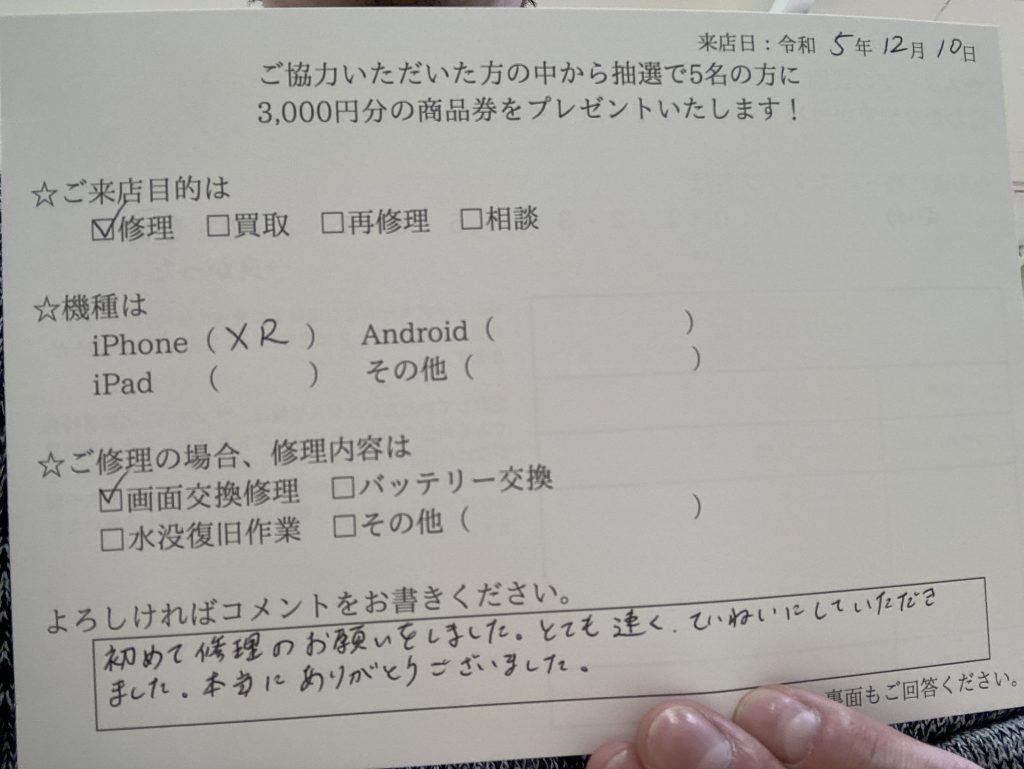 来店日：令和 5年 12月 10日
ご協力いただいた方の中から抽選で5名の方に
3,000円分の商品券をプレゼントいたします！
☆ご来店目的は
☑修理 □買取 □再修理 □相談
☆機種は
iPhone（XR） Android（ ）
iPad （ ） その他（ ）
☆ご修理の場合、修理内容は
☑画面交換修理 □バッテリー交換
□水没復旧作業 □その他（ ）
よろしければコメントをお書きください。
初めて修理のお願いをしました。とても速く、ていねいにしていただき
ました。本当にありがとうございました。
裏面もご回答ください。